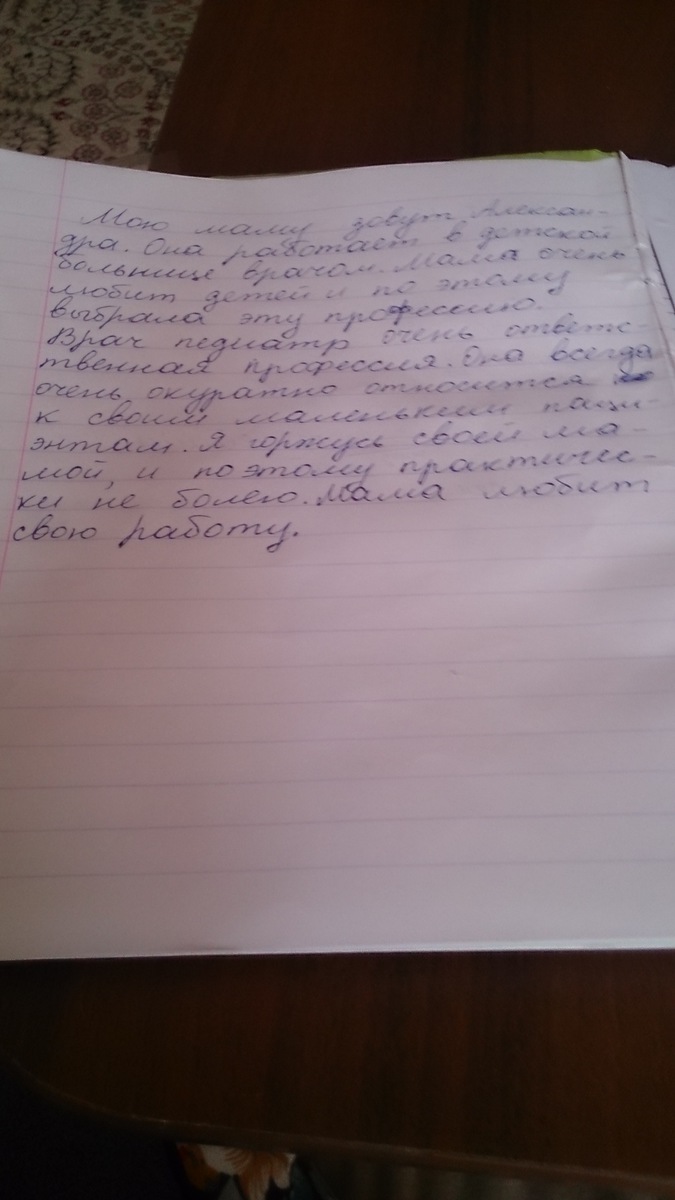 Мою маму зовут Алексан-
дра. Она работает в детской
больнице врачом. Мама очень
любит детей и по этому
выбрала эту профессию.
Врач педиатр очень ответс-
твенная профессия. Она всегда
очень окуратно относится
к своим маленьким паци-
энтам. Я горжусь своей ма-
мой, и поэтому практичес-
ки не болею. Мама любит
свою работу.